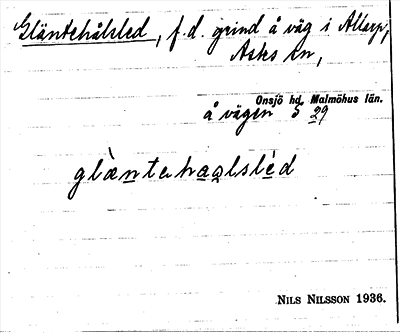 Gläntehålsled, f.d. grind å väg i Allarp,
Asks sn,
Onsjö hd, Malmöhus län.
å vägen 5 29
glæ̀ntəhaalsléd
NILS NILSSON 1936.